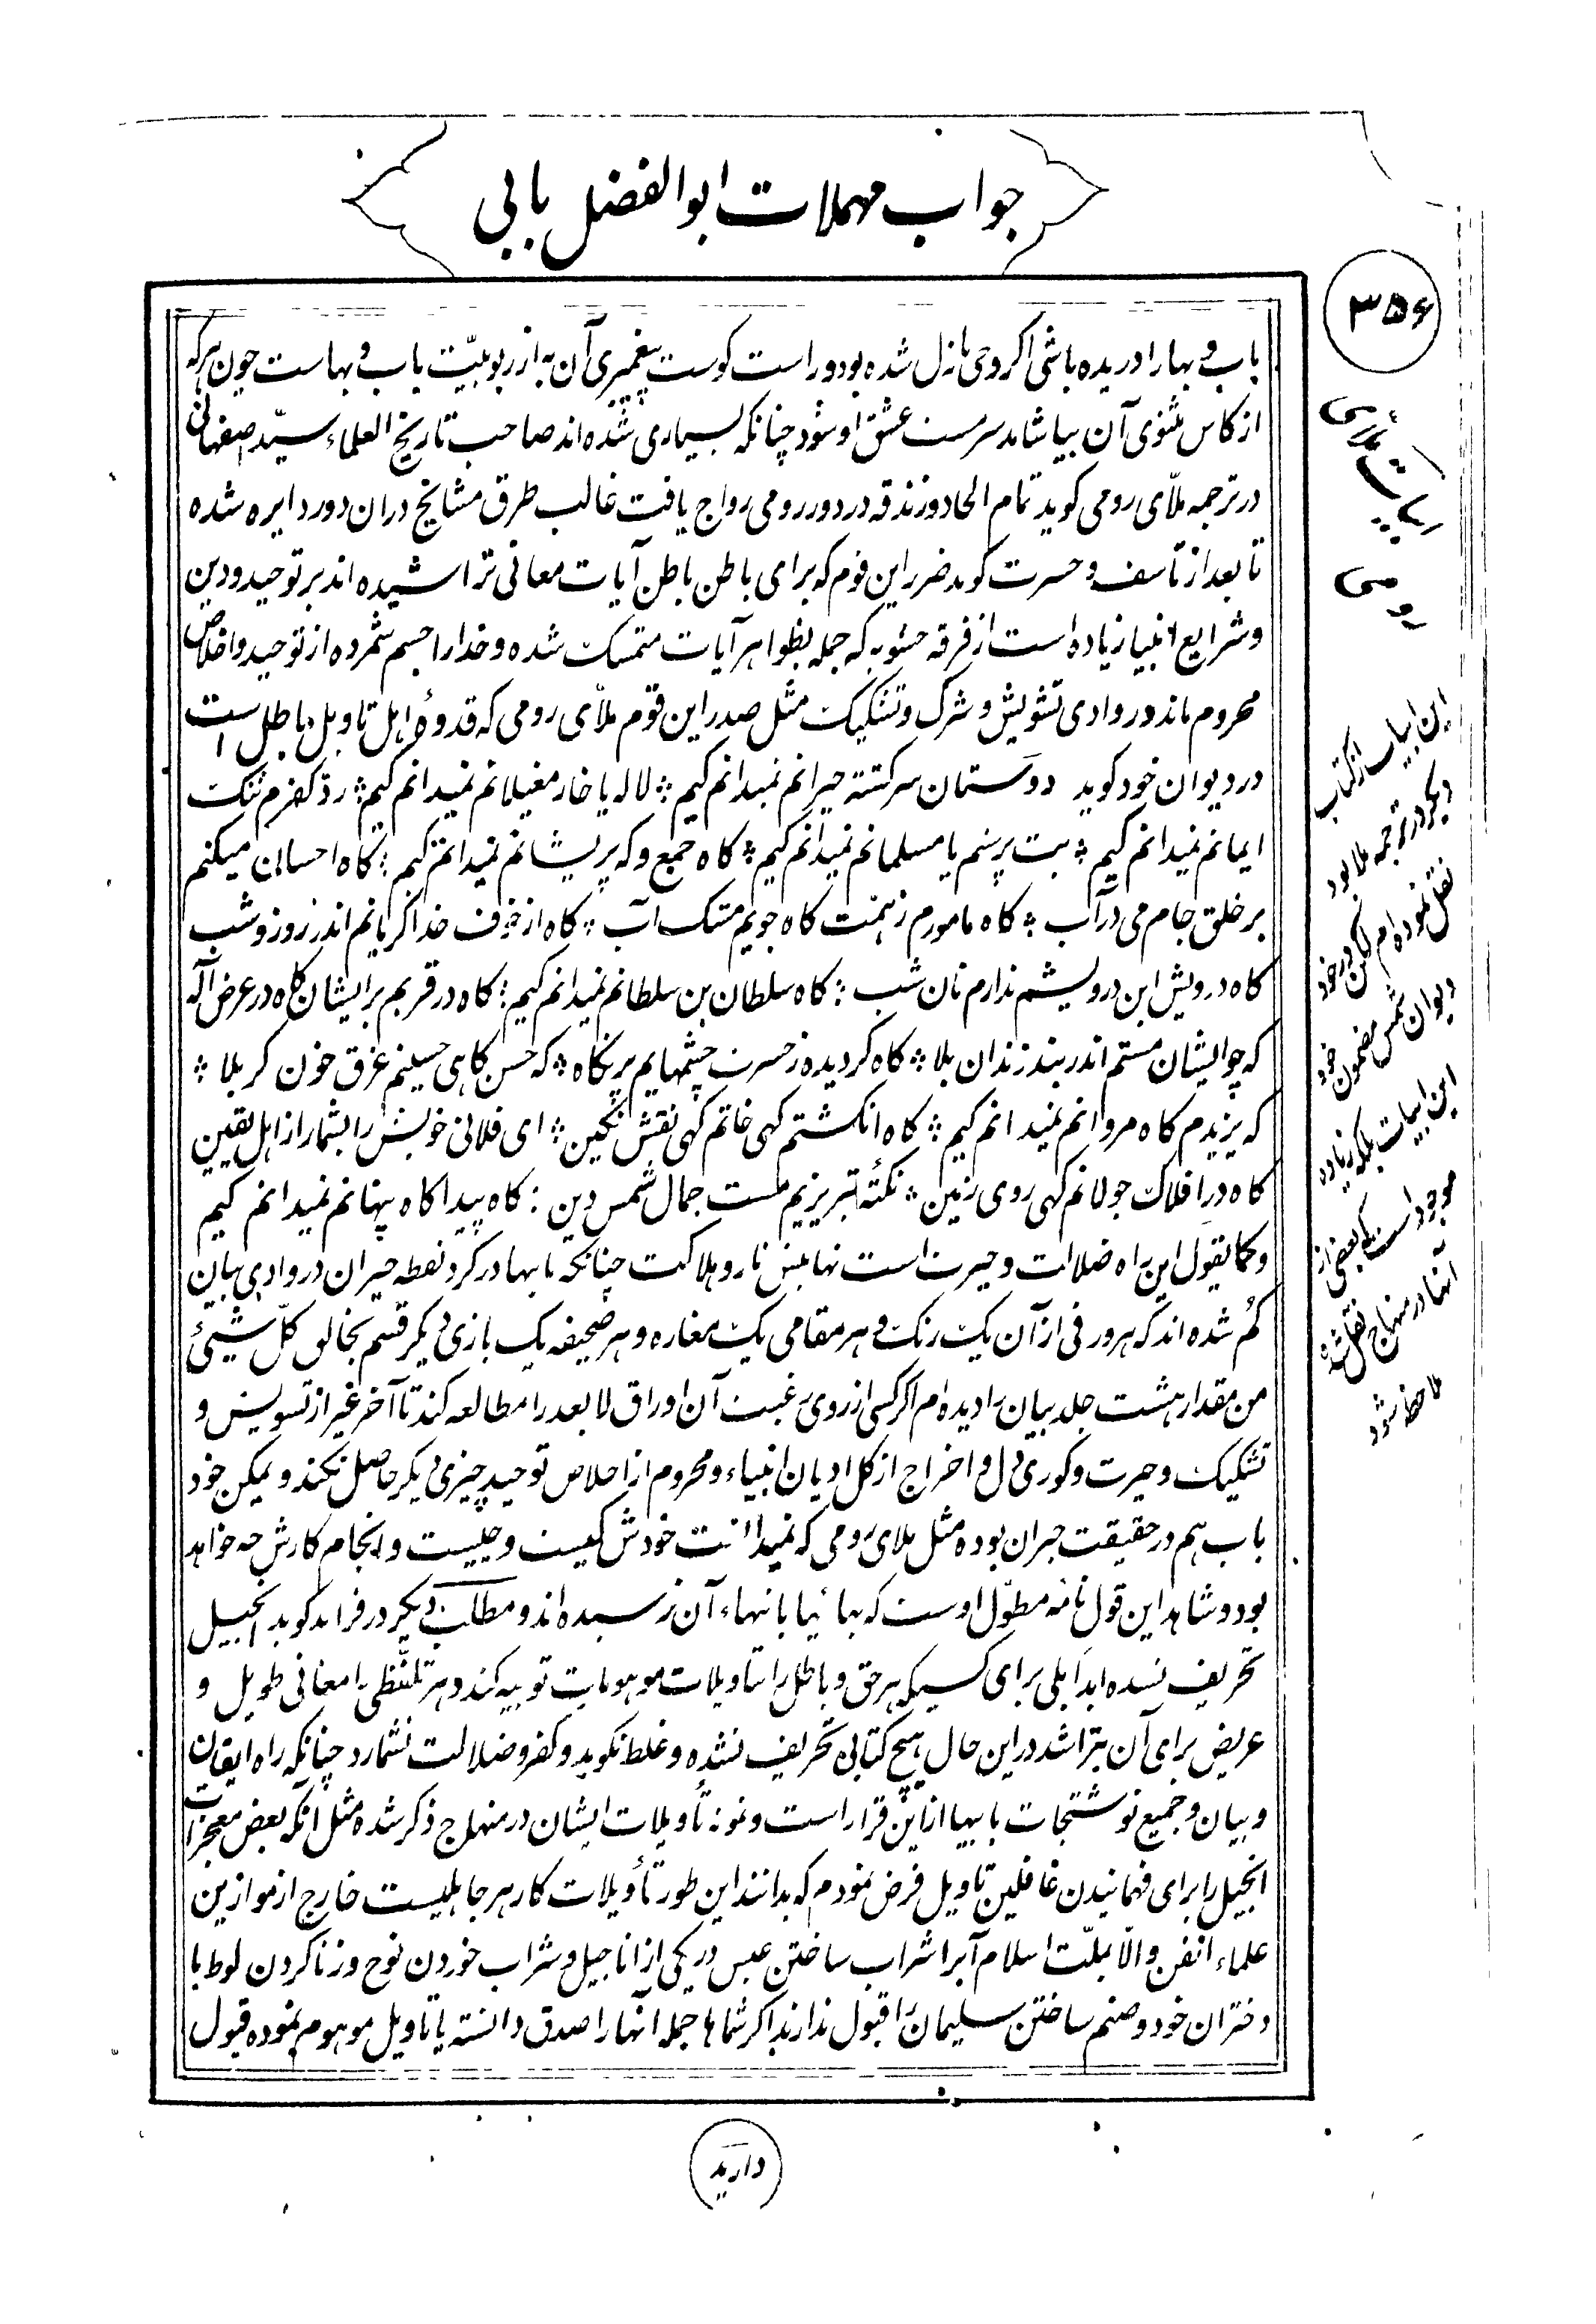 جواب مهملات ابوالفضل بابی
۳۵۶
باب و بها را دریده باشی اکر وحی نازل شده بود و راست کوست پیغمبری آن به از ربوبیّت باب و بهاست چون هرکه
از کاس مثنوی آن بیاشامد سرمست عشق او شود چنانکه بسیاری شده‌اند صاحب تاریخ العلماء سیّد اصفهانی
در ترجمه ملّای رومی کوید تمام الحاد و زندقه در دور رومی رواج یافت غالب طرق مشایخ دران دور دایره شده
تا بعد از تأسف و حسرت کوید ضرر این قوم که برای باطن باطن آیات معانی تراشیده‌اند بر توحید و دین
و شرایع انبیا زیاده است از فرقه حشویه که جمله بظواهر آیات متمسک شده و خدا را جسم شمرده از توحید و اخلاص
محروم ماند در وادی تشویش و شرک و تشکیک مثل صدر این قوم ملّای رومی که قدوهٔ اهل تاویل باطل است
در دیوان خود کوید دوستان سرکشته حیرانم نمیدانم کیم ؞ لاله یا خار مغیلانم نمیدانم کیم ؞ ردّ کفرم ننک
ایمانم نمیدانم کیم ؞ بت پرستم یا مسلمانم نمیدانم کیم ؞ کاه جمع و که پریشانم نمیدانم کیم ؞ کاه احسان میکنم
بر خلق جام می در آب ؞ کاه مامورم زهمّت کاه جویم مشک آب ؞ کاه از خوف خدا کریانم اندر روز و شب
کاه درویش ابن درویشم ندارم نان شب ؞ کاه سلطان بن سلطانم نمیدانم کیم ؞ کاه در قربم بر ایشان کاه در عرض اله
که چو ایشان مستم اندر بند زندان بلا ؞ کاه کردیده ز حسرت چشمهایم پر نکاه ؞ که حسن کاهی حسینم غرق خون کربلا ؞
که یزیدم کاه مروانم نمیدانم کیم ؞ کاه انکشتم کهی خاتم کهی نقش نکین ؞ ای فلانی خویش را بشمار از اهل یقین
کاه در افلاک جولانم کهی روی زمین ؞ نکتهٔ تبریزیم مست جمال شمس دین ؞ کاه پیدا کاه پنهانم نمیدانم کیم
و کما یقول این راه ضلالت و حیرت است نهایتش نار و هلاکت چنانکه بابیها در کرد نقطه حیران در وادی بیان
کم شده‌اند که هر ورقی از آن یک رنک و هر مقامی یک مغاره و هر صحیفه یک بازی دیکر قسم بخالق کلّ شیئی
من مقدار هشت جلد بیان را دیده‌ام اکر کسی از روی رغبت آن اوراق لا بعد را مطالعه کند تا آخر غیر از تسویش و
تشکیک و حیرت و کوری دل و اخراج از کل ادیان انبیاء و محروم از اخلاص توحید چیزی دیکر حاصل نکند و لیکن خود
باب هم در حقیقت حیران بوده مثل ملای رومی که نمیدانست خودش کیست و چیست و انجام کارش چه خواهد
بود و شاهد این قول نامه مطوّل اوست که بهائیها بانتهاء آن نرسیده‌اند و مطلب دیکر در فراید کوید انجیل
تحریف نشده ابدا بلی برای کسیکه هر حق و باطل را بتاویلات موهومات توجیه کند و هر تلفّظی را معانی طویل و
عریض برای آن بتراشد در این حال هیچ کتابی تحریف نشده و غلط نکوید و کفر و ضلالت نشمارد چنانکه راه ایقان
و بیان و جمیع نوشتجات بابیها از این قرار است و نمونه تأویلات ایشان در منهاج ذکر شده مثل آنکه بعض معجزات
انجیل را برای فهمانیدن غافلین تاویل فرض نمودم که بدانند این طور تأویلات کار هر جاهلیست خارج از موازین
علماء انفن و الّا بملّت اسلام آبرا شراب ساختن عیسی در یکی از اناجیل و شراب خوردن نوح و زنا کردن لوط با
دختران خود و صنم ساختن سلیمان را قبول ندارند اکر شماها جمله آنها را صدق دانسته یا تاویل موهوم نموده قبول
دارید
ابیات فارسی
رومی
این ابیات از کتاب
دیکر در ترجمه ملا بود
نقل نموده‌ام لکن در خود
دیوان شمس مضمون خود
این ابیات بلکه زیاده
موجود است که بعضی از
آنها در منهاج نقل شده
ملاحظه شود